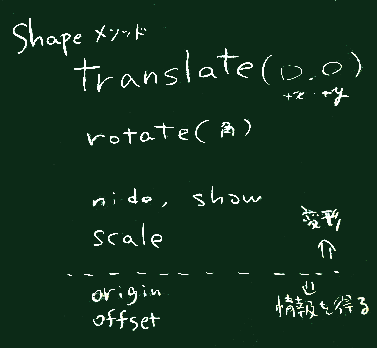 Shape メソッド
translate(0.0)
+x +y
rotate(角)
hide, show
変形
scale
↑
origin
↓
情報を得る
offset